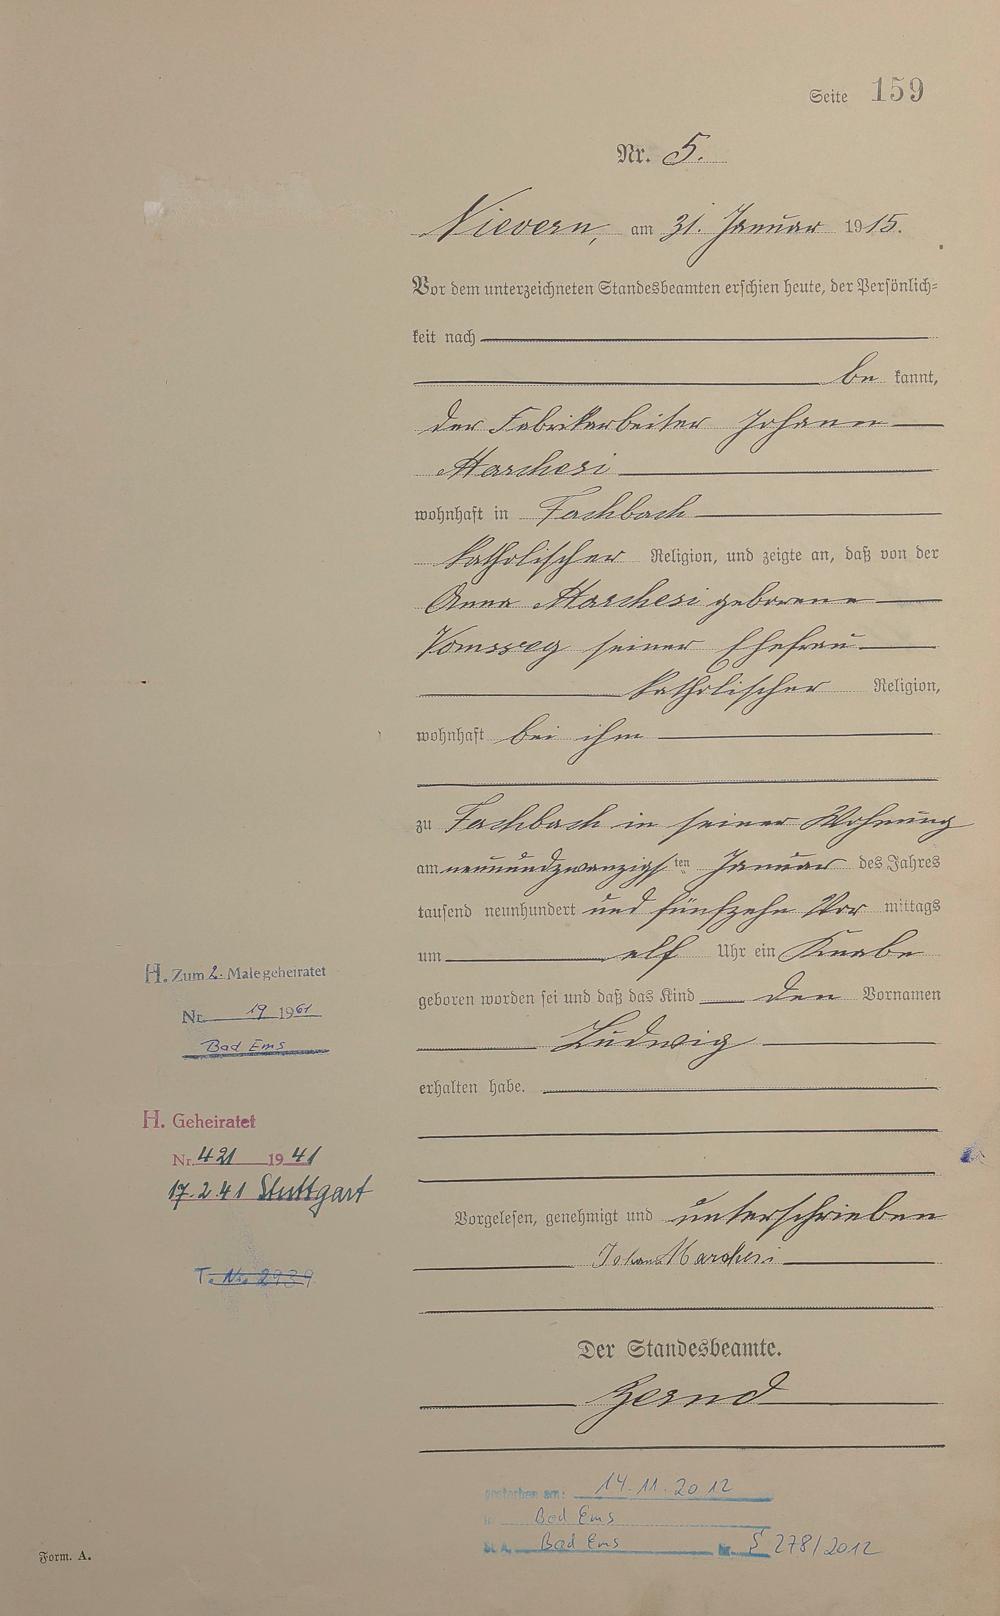 Seite 159
Nr. 5.
Nievern, am 31. Januar 1915.
Vor dem unterzeichneten Standesbeamten erschien heute, der Persönlich=
keit nach
be kannt,
der Fabrikarbeiter Johann
Marchesi
wohnhaft in Fachbach
katholischer Religion, und zeigte an, daß von der
Anna Marchesi geborene
seiner Ehefrau
katholischer Religion,
wohnhaft bei ihm
zu Fachbach in seiner Wohnung
am neunundzwanzigsten Januar des Jahres
tausend neunhundert und fünfzehn Vor mittags
um elf Uhr ein Knabe
geboren worden sei und daß das Kind den Vornamen
Ludwig
erhalten habe.
Vorgelesen, genehmigt und unterschrieben
Johann Marchesi
Der Standesbeamte.
H. Zum 2. Male geheiratet
Nr. 19 1961
Bad Ems
H. Geheiratet
Nr. 421 1941
17.2.41 Stuttgart
T. Nr. 2939
gestorben am: 14.11.2012
in Bad Ems
St. A. Bad Ems Nr. S 278/2012
Form. A.